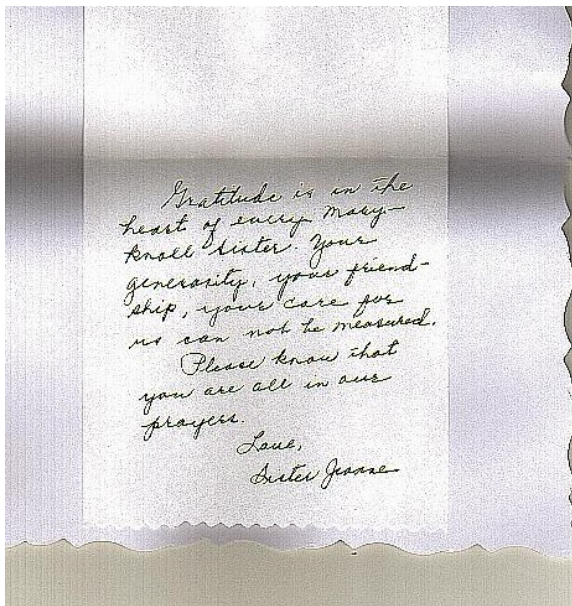 Gratitude is in the
heart of every Mary-
knoll Sister. Your
generosity, your friend-
ship, your care for
us can not be measured.
Please know that
you are all in our
prayers.
Love,
Sister Jeanne